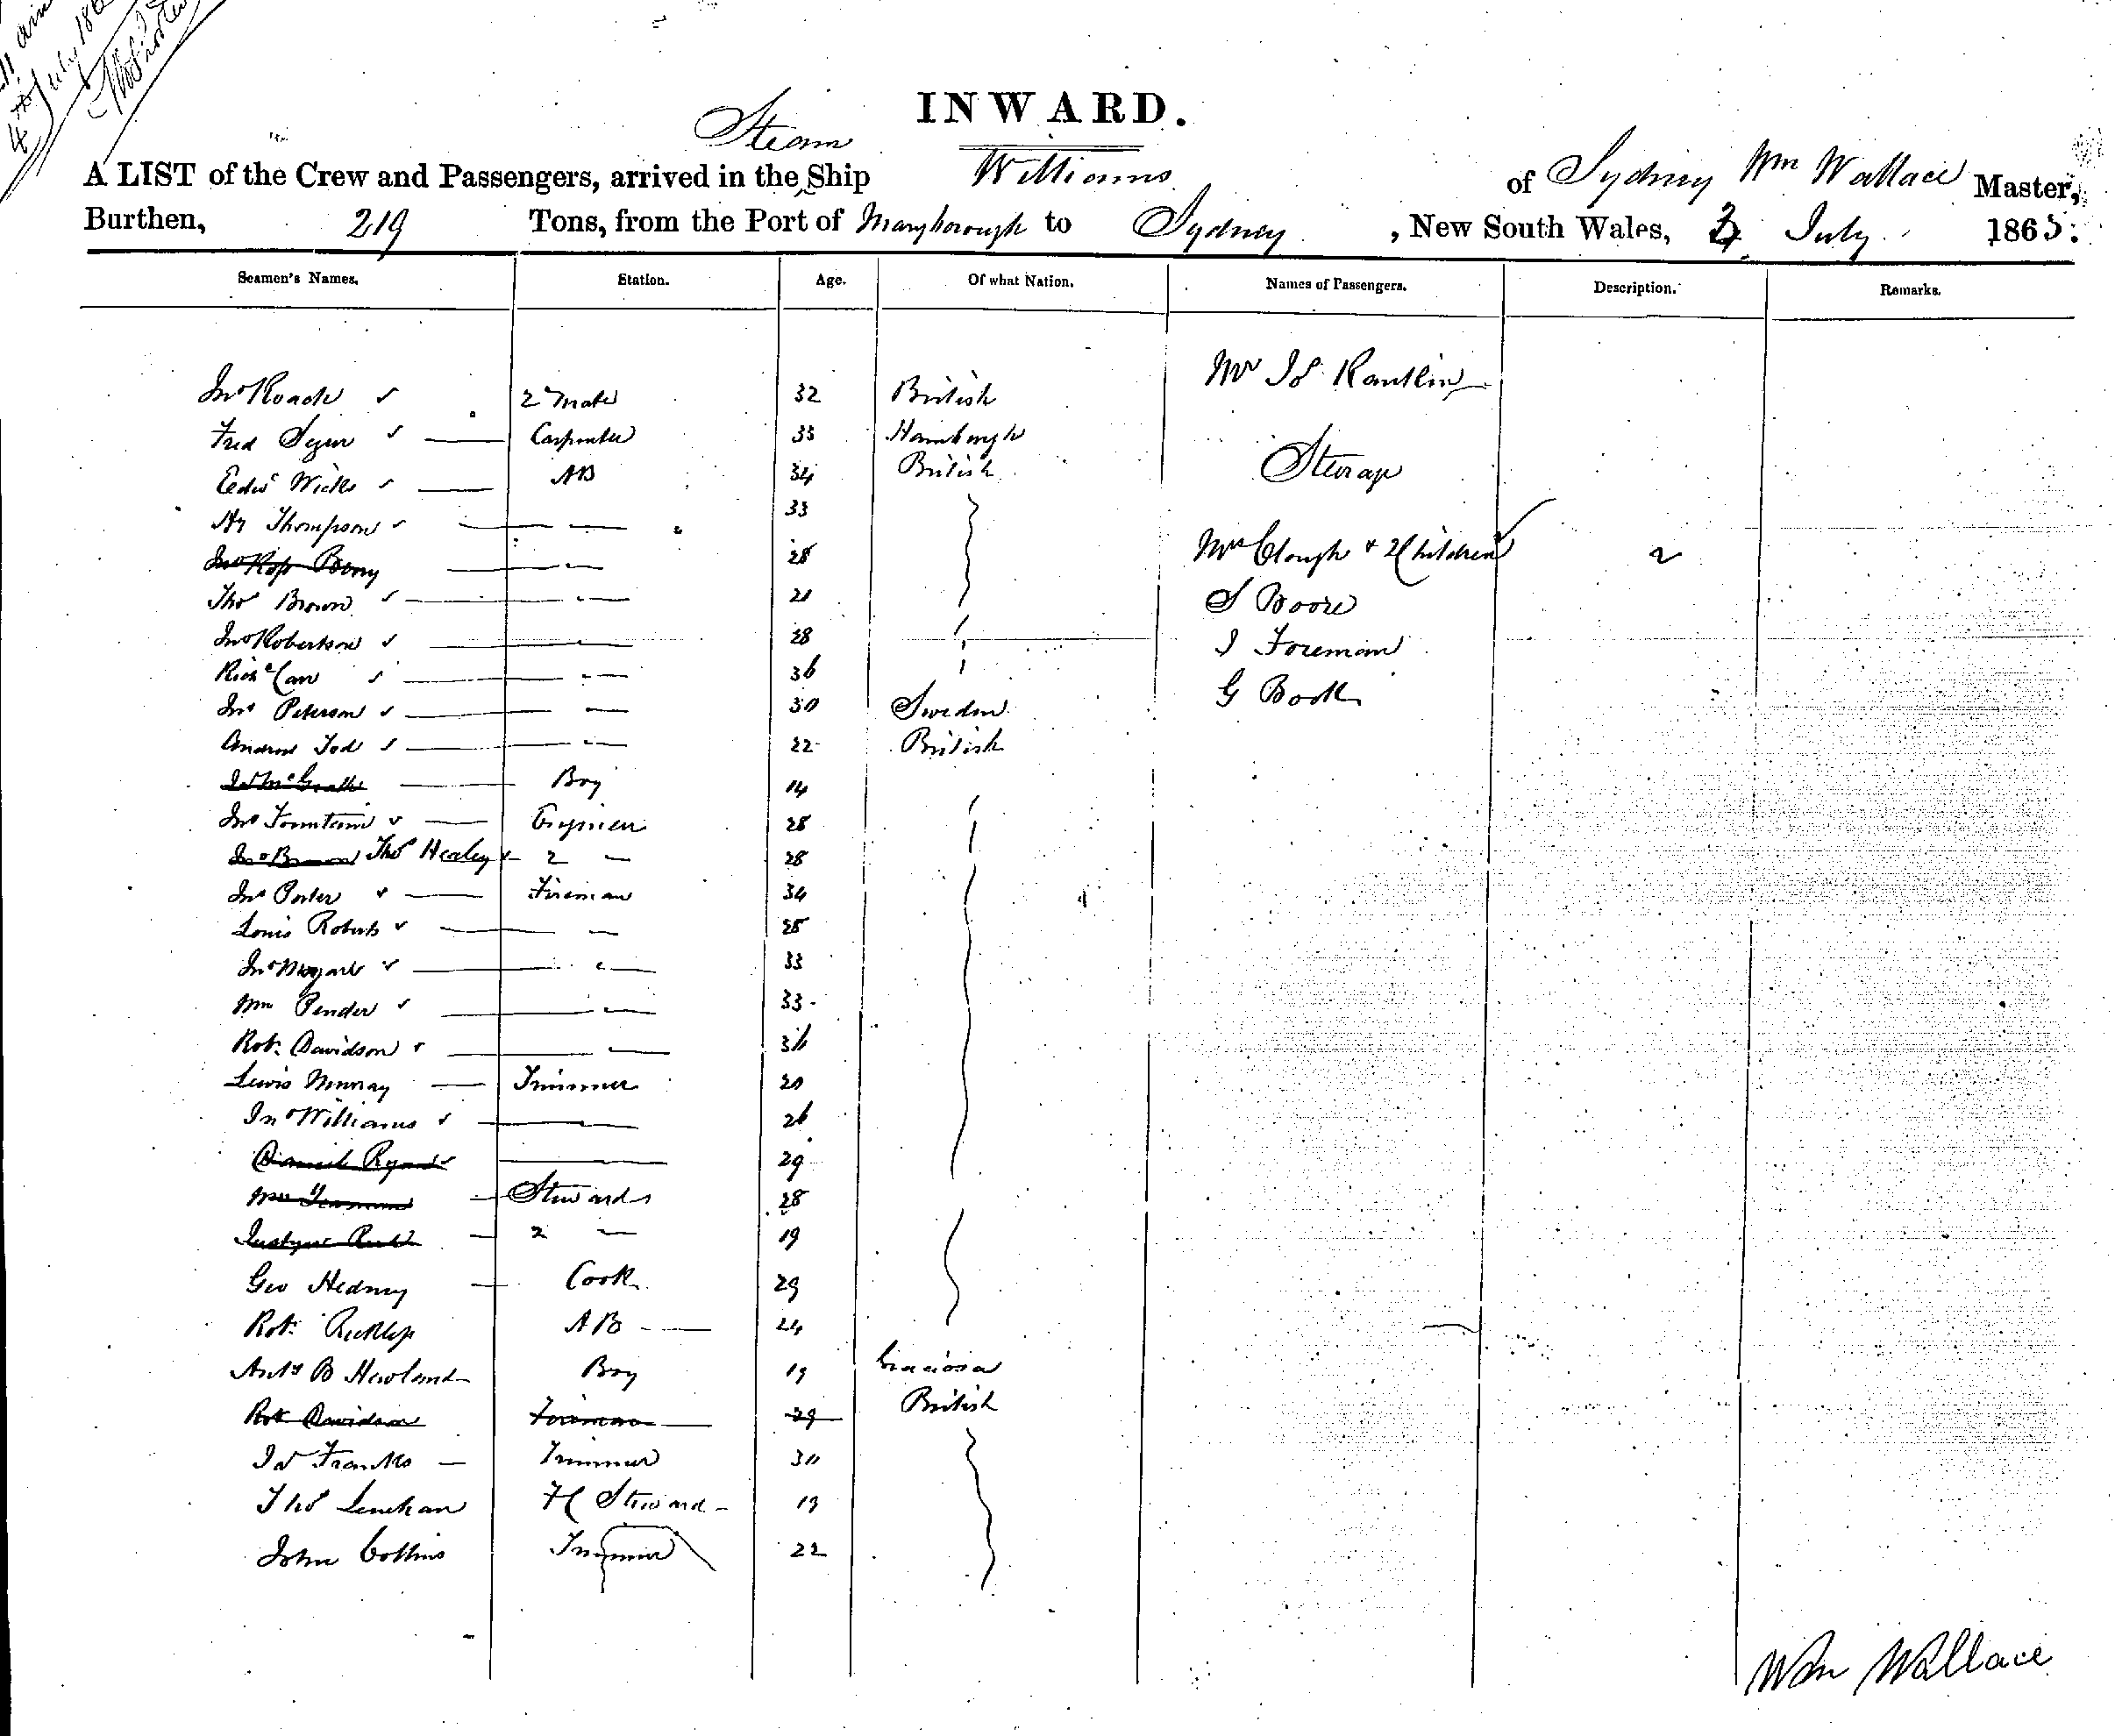 4th July 186
INWARD.
Steam
A LIST of the Crew and Passengers, arrived in the Ship Williams of Sydney Wm Wallace Master,
Burthen, 219 Tons, from the Port of Maryborough to Sydney, New South Wales, 4 July 1865.
Seamen's Names. Station. Age. Of what Nation. Names of Passengers. Description. Remarks.
Mr Js
Jno Roach 2 Mate 32 British
Fred Carpenter 33 Hamburgh
Edwd Wicks AB 34 British Steerage
Hy Thompson 33
Jno Ross Berry 28 Mrs Clough & 2 Children 2
Thos Brown 21 S Boore
Jno Robertson 28 J Foreman
Richd Carr 36 G Booth
Jno Peterson 30 Sweden
Andrew Tod 22 British
Jas McGrath Boy 14
Jno Fountain Engineer 28
Jno Brown Thos Healey 2 28
Jno Porter Fireman 34
Louis Roberts 28
Jno 33
Wm Pender 33
Robt Davidson 36
Lewis Murray Trimmer 20
Jno Williams 26
Daniel Ryan 29
Wm Stewards 28
2 19
Geo Hedney Cook 29
Robt AB 24
Anty B Howland Boy 19 Graciosa
Robt Davidson Fireman 29 British
Jas Franks Trimmer 30
Thos Lenehan Steward 19
John Collins Trimmer 22
Wm Wallace